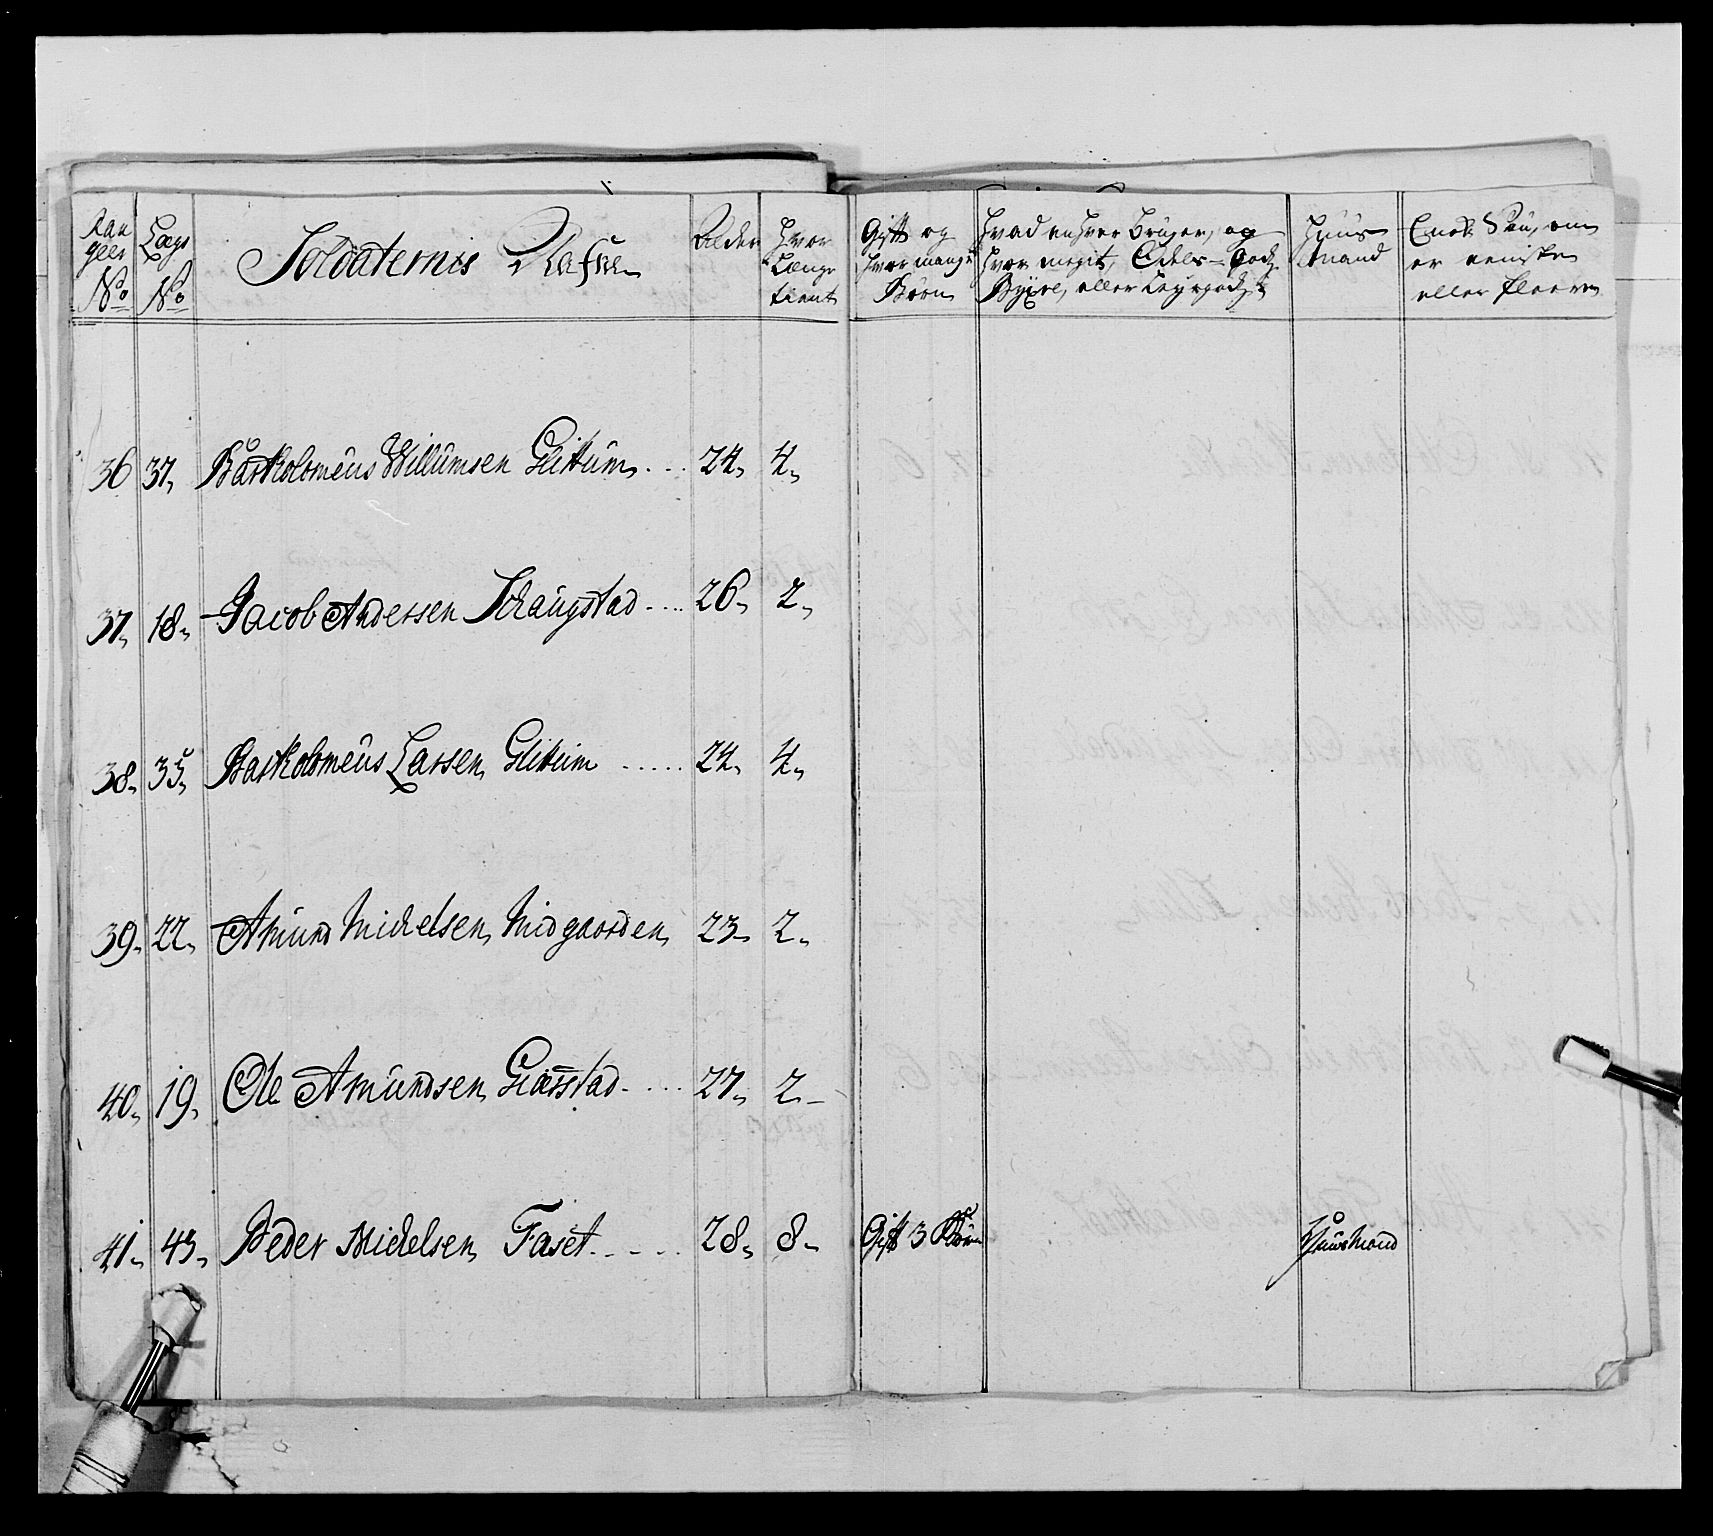 Ran
geer
No
Lægs
No
Soldaternis Nafne
Alder
Hvor
Længe
tient
Gift og
hvor mange
Børn
Hvad en hver Bruger, og
hvor meget, Odels-Gods
Byxel, eller Leyegods
Huus
Mand
Enek Søn, om
er eeniste
eller fleere
36 37, Bartholomeus Willumsen Glittum. .. 24, 4,
37, 18, Jacob Andersen Schaugstad .... 26, 2,
38, 35, Bartholomeus Larsen, Glittum ..... 24, 4,
39, 22, Amund Michelsen, Midgaarden, 23, 2,
40, 19, Ole Amundsen, Giærstad. .... 27, 2
41, 43, Peder Michelsen, Faset. .... 28, 8, Gift 3 Børn Huusmand